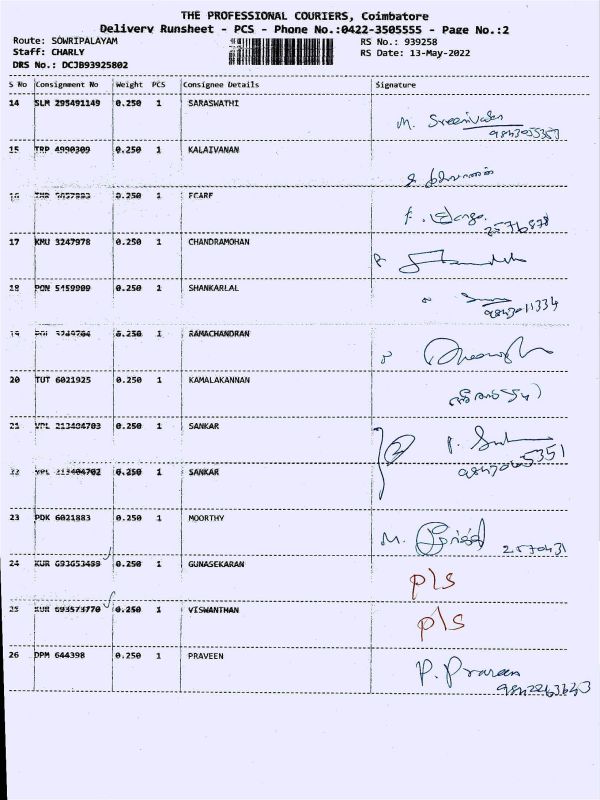 THE PROFESSIONAL COURIERS, Coimbatore
Delivery Runsheet - PCS - Phone No.:0422-3505555 - Page No.:2
Route: SOWRIPALAYAM RS No.: 939258
Staff: CHARLY RS Date: 13-May-2022
DRS No.: DCJB93925802
S No Consignment No Weight PCS Consignee Details Signature
14 SLM 295491149 0.250 1 SARASWATHI
M. Sreenivasan
15 TRP 4990309 0.250 1 KALAIVANAN
16 0.250 1 ECARE
25716878
17 KMU 3247978 0.250 1 CHANDRAMOHAN
18 PON 5459909 0.250 1 SHANKARLAL
9843011334
19 0.250 1 RAMACHANDRAN
20 TUT 6021925 0.250 1 KAMALAKANNAN
21 VPL 213404703 0.250 1 SANKAR
22 VPL 213404702 0.250 1 SANKAR
23 PDK 6021883 0.250 1 MOORTHY
M. 2570431
24 KUR 693653499 0.250 1 GUNASEKARAN
P/S
25 KUR 693573770 0.250 1 VISWANTHAN
P/S
26 DPM 644398 0.250 1 PRAVEEN
P. Praveen